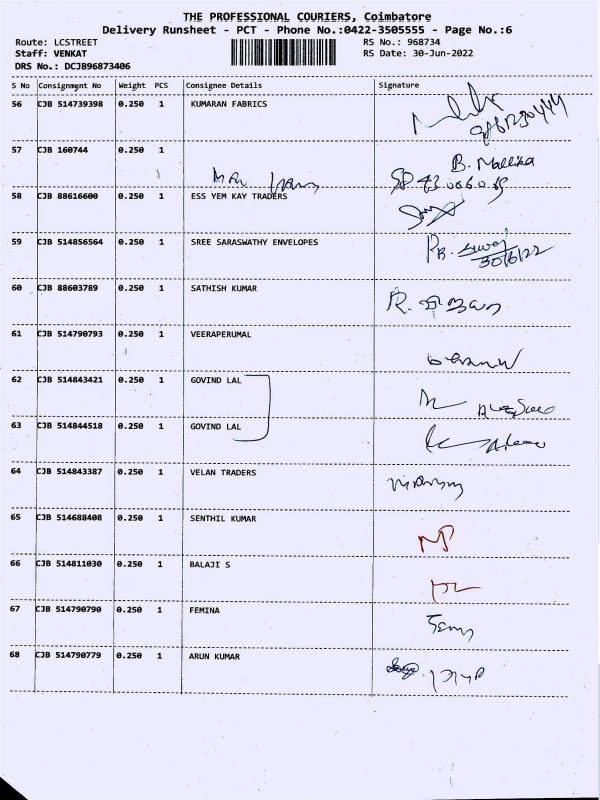 THE PROFESSIONAL COURIERS, Coimbatore
Delivery Runsheet - PCT - Phone No.:0422-3505555 - Page No.:6
Route: LCSTREET
RS No.: 968734
Staff: VENKAT
RS Date: 30-Jun-2022
DRS No.: DCJB96873406
S No Consignment No Weight PCS Consignee Details Signature
56 CJB 514739398 0.250 1 KUMARAN FABRICS
57 CJB 160744 0.250 1
B. Mallika
58 CJB 88616600 0.250 1 ESS YEM KAY TRADERS
59 CJB 514856564 0.250 1 SREE SARASWATHY ENVELOPES
30/6/22
60 CJB 88603789 0.250 1 SATHISH KUMAR
61 CJB 514790793 0.250 1 VEERAPERUMAL
62 CJB 514843421 0.250 1 GOVIND LAL
63 CJB 514844518 0.250 1 GOVIND LAL
64 CJB 514843387 0.250 1 VELAN TRADERS
65 CJB 514688408 0.250 1 SENTHIL KUMAR
66 CJB 514811030 0.250 1 BALAJI S
67 CJB 514790790 0.250 1 FEMINA
68 CJB 514790779 0.250 1 ARUN KUMAR